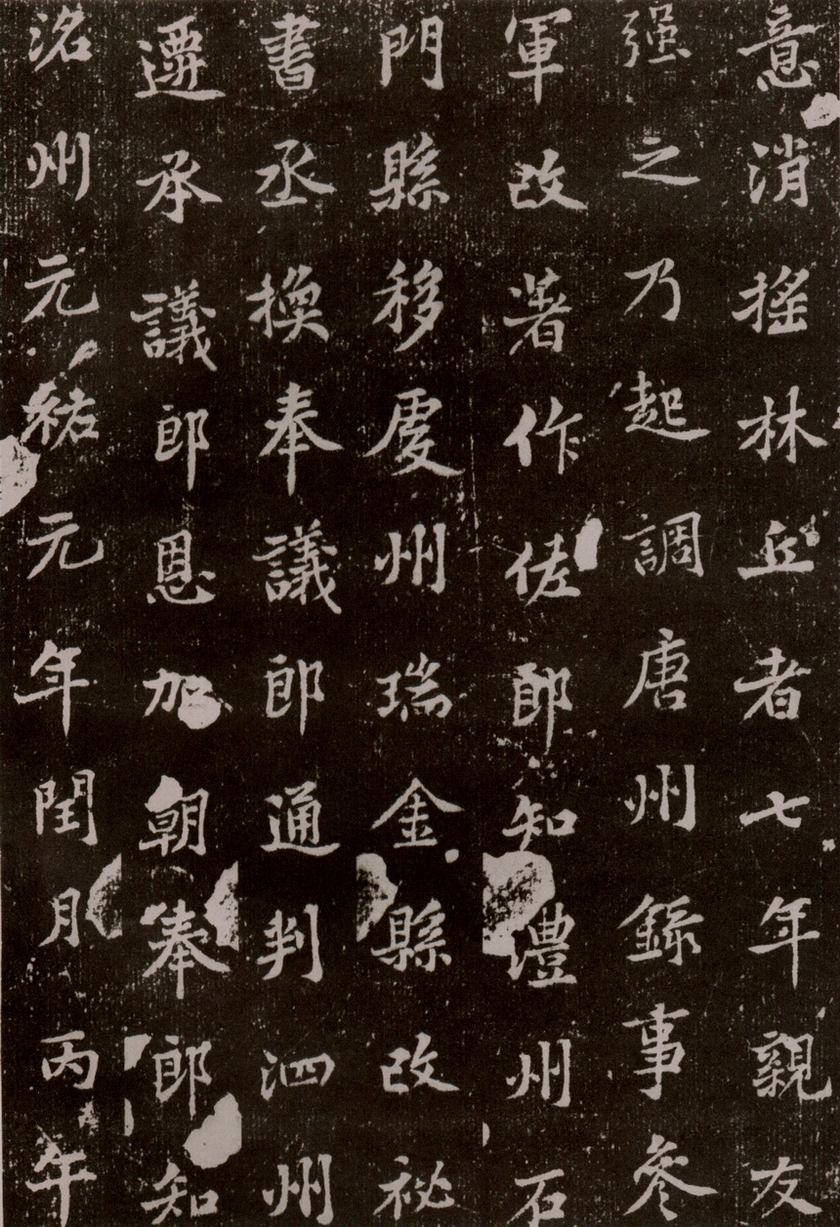 意消揺林丘者七年親友
强之乃起調唐州錄事參
軍改著作佐郎知澧州石
門縣移虔州瑞金縣改祕
書丞換奉議郎通判泗州
遷承議郎恩加朝奉郎知
洺州元祐元年閏月丙午